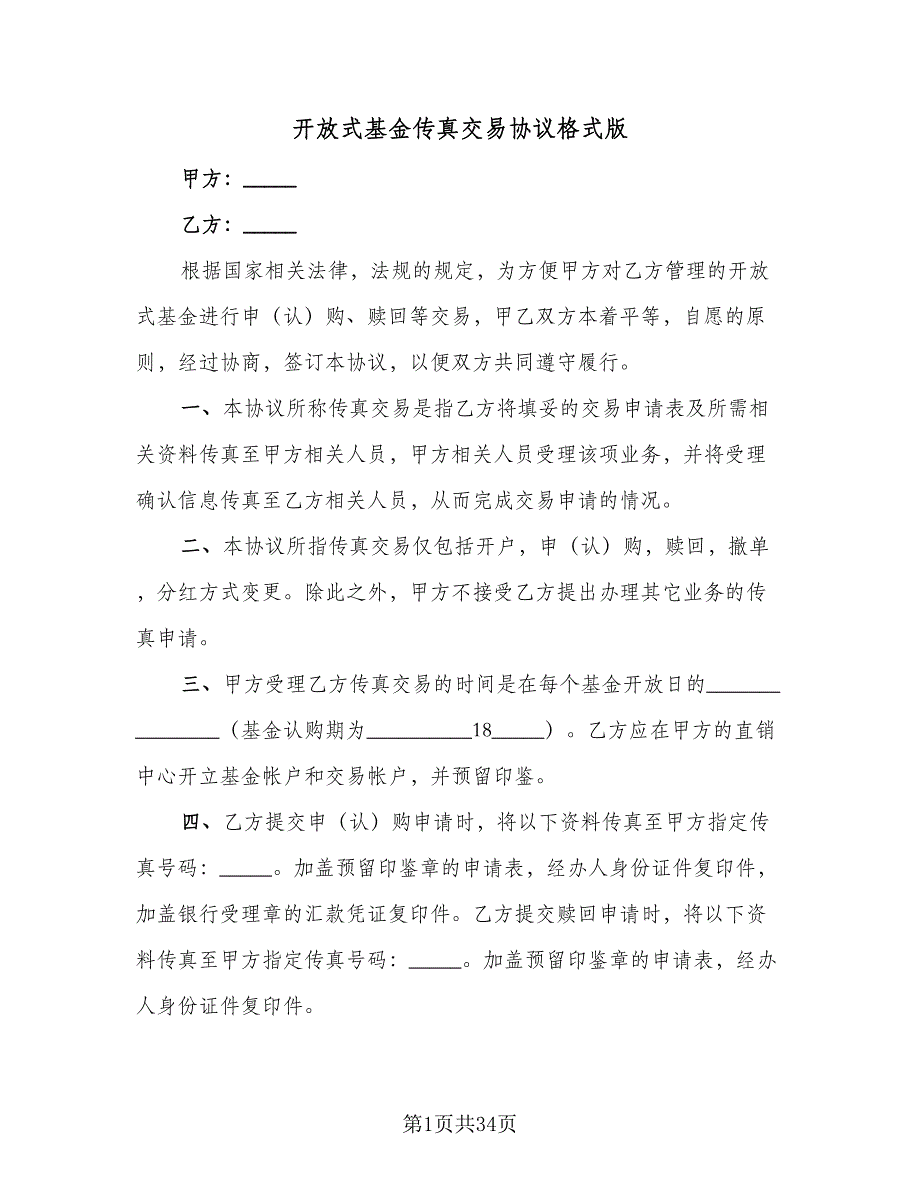 开放式基金传真交易协议格式版
甲方：_____
乙方：_____
根据国家相关法律，法规的规定，为方便甲方对乙方管理的开放
式基金进行申（认）购、赎回等交易，甲乙双方本着平等，自愿的原
则，经过协商，签订本协议，以便双方共同遵守履行。
一、本协议所称传真交易是指乙方将填妥的交易申请表及所需相
关资料传真至甲方相关人员，甲方相关人员受理该项业务，并将受理
确认信息传真至乙方相关人员，从而完成交易申请的情况。
二、本协议所指传真交易仅包括开户，申（认）购，赎回，撤单
，分红方式变更。除此之外，甲方不接受乙方提出办理其它业务的传
真申请。
三、甲方受理乙方传真交易的时间是在每个基金开放日的_______
________（基金认购期为__________18_____）。乙方应在甲方的直销
中心开立基金帐户和交易帐户，并预留印鉴。
四、乙方提交申（认）购申请时，将以下资料传真至甲方指定传
真号码：_____。加盖预留印鉴章的申请表，经办人身份证件复印件，
加盖银行受理章的汇款凭证复印件。乙方提交赎回申请时，将以下资
料传真至甲方指定传真号码：_____。加盖预留印鉴章的申请表，经办
人身份证件复印件。
第1页共34页